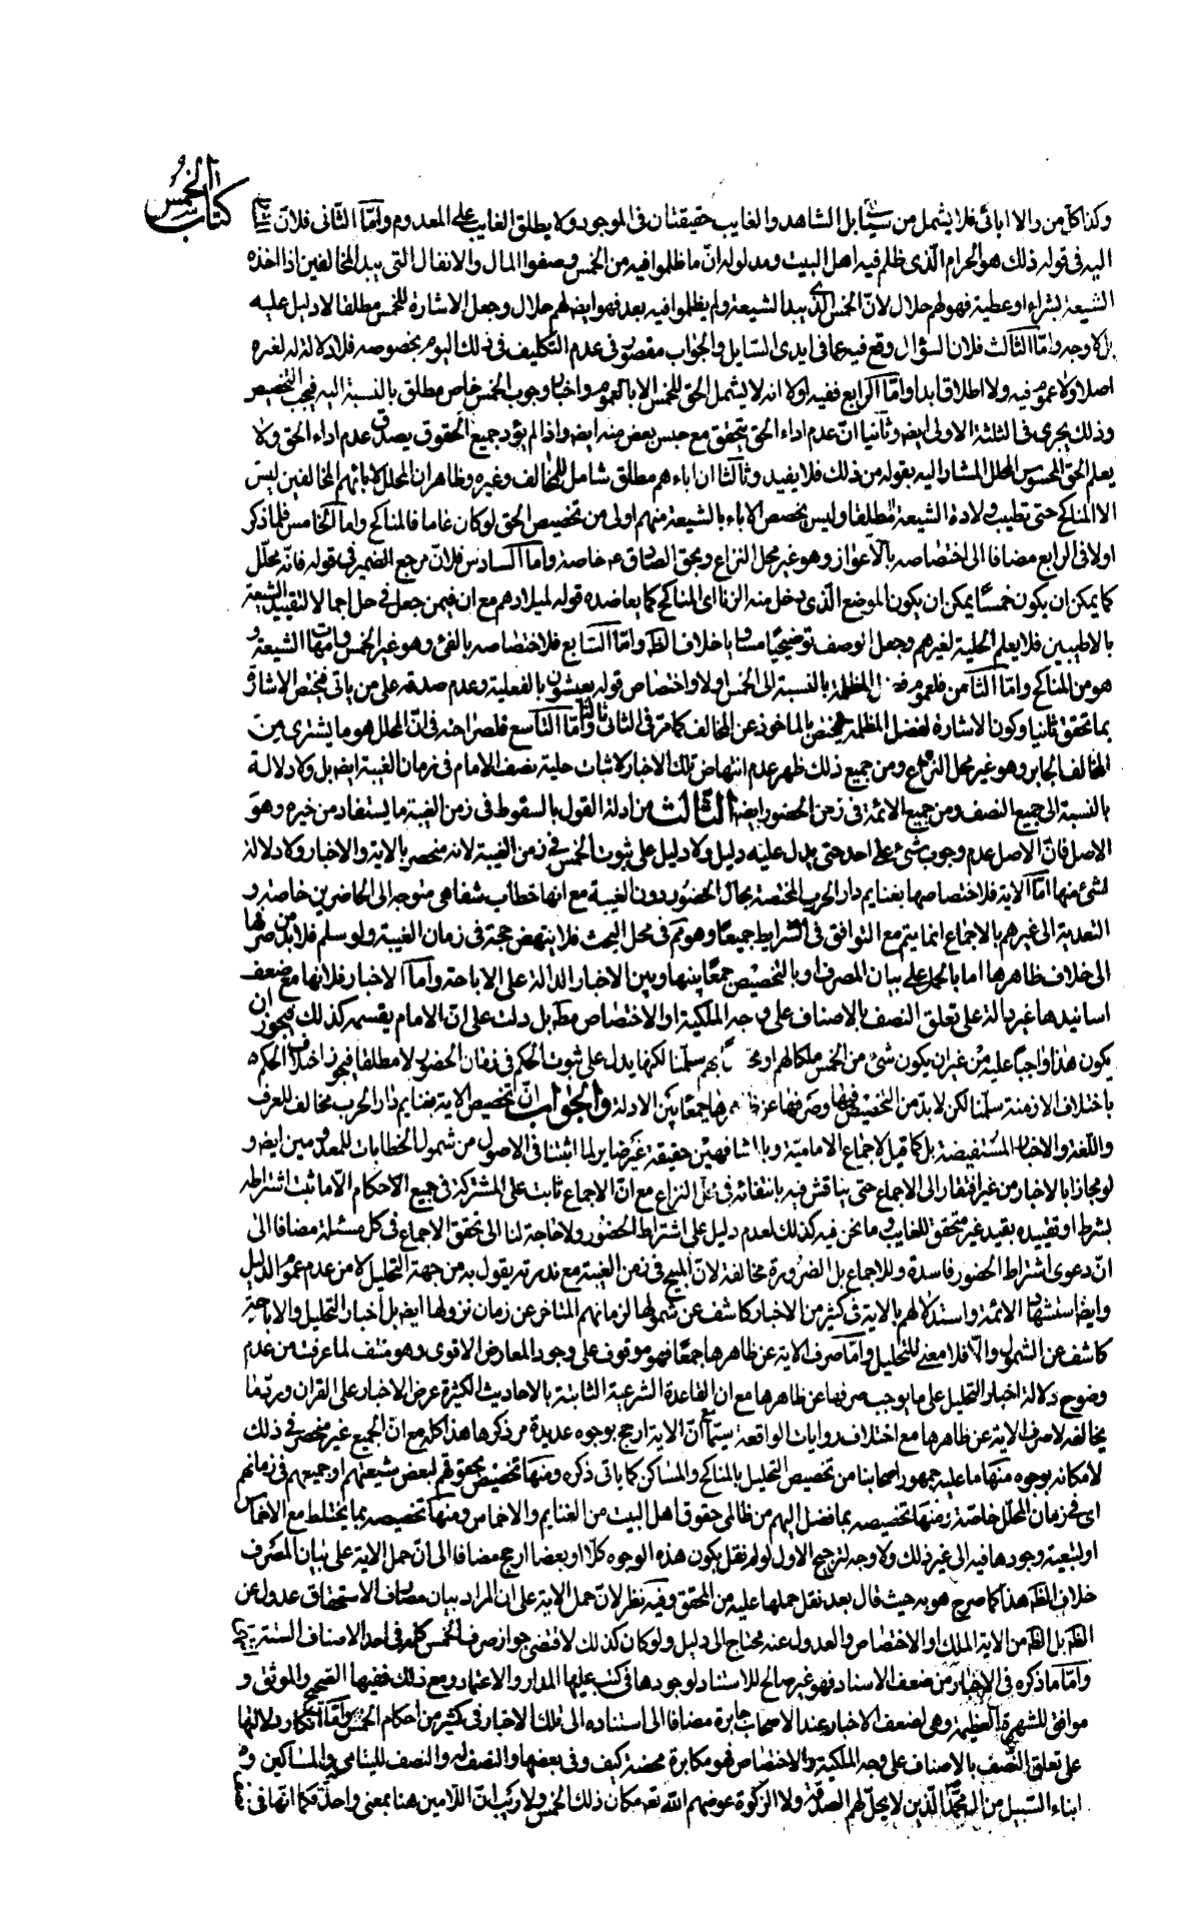 كتاب الخمس
وكذا كل من والا ابائى فلا يشمل من سياتى بل الشاهد والغايب حقيقتان فى الموجود ولا يطلق الغايب على المعدوم واما الثانى فلان
اليه فى قوله ذلك هو الحرام الذى ظلم فيه اهل البيت ومدلوله ان ما ظلموا فيه من الخمس وصفوا المال والانفال التى بيد المخالفين اذا اخذه
الشيعة بشراء او عطية فهو لهم حلال لان الخمس الذى بيد الشيعة ولم يظلموا فيه بعد فهو ايضا لهم حلال وجعل الاشارة للخمس مطلقا لا دليل عليه
بل لا وجه واما الثالث فلان السؤال وقع فيه عما فى ايدى السايل والجواب مقصور فى عدم التكليف فى ذلك اليوم بخصوصه فلا دلالة له لغيره
اصلا ولا عموم فيه ولا اطلاق ابدا واما الرابع ففيه اولا انه لا يشمل الحق للخمس الا بالعموم واخبار وجوب الخمس خاص مطلق بالنسبة اليه فيجب التخصيص
وذلك يجرى فى الثلثة الاولى ايضا وثانيا ان عدم اداء الحق يتحقق مع حبس بعض منه ايضا واذا لم يؤد جميع الحقوق يصدق عدم اداء الحق ولا
يعلم الحق المحبوس المحلل المشار اليه بقوله من ذلك فلا يفيد وثالثا ان اباءهم مطلق شامل للمخالف وغيره وظاهر ان المحلل لابائهم المخالفين ليس
الا المناكح حتى تطيب ولادة الشيعة مطلقا وليس تخصيص الاباء بالشيعة منهم اولى من تخصيص الحق لو كان عاما فالمناكح واما الخامس فلما ذكر
اولا فى الرابع مضافا الى اختصاصه بالاعواز وهو غير محل النزاع وبحق الصادق ع خاصة واما السادس فلان مرجع الضمير فى قوله فانه محلل
كما يمكن ان يكون خمسا يمكن ان يكون الموضع الذى دخل منه الزنا اى المناكح كما يعاضده قوله لميلادهم مع ان فيمن جعل فى حل اجمالا لتقييد الشيعة
بالاطيبين فلا يعلم الحلية لغيرهم وجعل الوصف توضيحيا مساويا خلاف الظ واما السابع فلاختصاصه بالفئ وهو غير الخمس وامهات الشيعة و
هو من المناكح واما الثامن فلعموم المظلمة بالنسبة الى الخمس اولا واختصاص قوله يعيشون بالفعلية وعدم صدقه على من ياتى فيختص الاشارة
بما تحقق ثانيا وكون الاشارة لفضل المظلمة فيختص بالماخوذ عن المخالف كما مر فى الثانى ثالثا واما التاسع فلصراحته فى ان المحلل هو ما يشترى من
المخالف الجابر وهو غير محل النزاع ومن جميع ذلك ظهر عدم انتهاض تلك الاخبار لاثبات حلية نصف الامام فى زمان الغيبة ايضا بل ولا دلالة
بالنسبة الى جميع النصف ومن جميع الائمة فى زمن الحضور ايضا الثالث من ادلة القول بالسقوط فى زمن الغيبة ما يستفاد من خيره وهو
الاصل فان الاصل عدم وجوب شئ على احد حتى يدل عليه دليل ولا دليل على ثبوت الخمس فى زمن الغيبة لانه منحصر بالاية والاخبار ولا دلالة
لشئ منها اما الاية فلاختصاصها بغنايم دار الحرب المختصة بحال الحضور دون الغيبة مع انها خطاب شفاهى متوجه الى الحاضرين خاصة و
التعدية الى غيرهم بالاجماع انما يتم مع التوافق فى الشرايط جميعا وهو ثم فى محل البحث فلا ينتهض حجة فى زمان الغيبة ولو سلم فلا بد من صرفها
الى خلاف ظاهرها اما بالحمل على بيان المصرف او بالتخصيص جمعا بينها وبين الاخبار الدالة على الاباحة واما الاخبار فلانها مع ضعف
اسانيدها غير دالة على تعلق النصف بالاصناف على وجه الملكية او الاختصاص مط بل دلت على ان الامام يقسمه كذلك فيجوز ان
يكون هذا واجبا عليه من غير ان يكون شئ من الخمس ملكا لهم او بهم سلمنا لكنها يدل على ثبوت الحكم فى زمان الحضور لا مطلقا فيجوز اختلاف الحكم
باختلاف الازمنة سلمنا لكن لا بد من التخصيص فيها وصرفها عن ظاهرها جمعا بين الادلة والجواب ان تخصيص الاية بغنايم دار الحرب مخالف للعرف
واللغة والاخبار المستفيضة بل كما قيل لاجماع الامامية وبالمشافهين حقيقة غير ضاير لما اثبتنا فى الاصول من شمول الخطابات للمعدومين ايضا و
لو مجازا بالاخبار من غير افتقار الى الاجماع حتى يناقش فيه بانتفائه فى محل النزاع مع ان الاجماع ثابت على المشتركة فى جميع الاحكام الا ما ثبت اشتراطه
بشرط او تقييده بقيد غير متحقق للغايب وما نحن فيه كذلك لعدم دليل على اشتراط الحضور ولا حاجة لنا الى تحقق الاجماع فى كل مسئلة مضافا الى
ان دعوى اشتراط الحضور فاسدة وللاجماع بل الضرورة مخالفة لان المبيح فى زمن الغيبة مع ندرته يقول به من جهة التحليل لا من عدم عموم الدليل
وايضا استشهاد الائمة واستدلالهم بالاية فى كثير من الاخبار كاشف عن شمولها لزمانهم المتاخر عن زمان نزولها ايضا بل اخبار التحليل والاباحة
كاشف عن الشمول والا فلا معنى للتحليل واما صرف الاية عن ظاهرها جمعا فهو موقوف على وجود المعارض الاقوى وهو منتف لما عرفت من عدم
وضوح دلالة اخبار التحليل على ما يوجب صرفها عن ظاهرها مع ان القاعدة الشرعية الثابتة بالاحاديث الكثيرة عرض الاخبار على القران ورد ما
يخالفه لا صرف الاية عن ظاهرها مع اختلاف روايات الواقعة سيما مع ان الاية ارجح بوجوه عديدة مر ذكرها هذا كله مع ان الجمع غير منحصر فى ذلك
لامكانه بوجوه منها ما عليه جمهور اصحابنا من تخصيص التحليل بالمناكح والمساكن كما ياتى ذكره ومنها تخصيص بحقوقهم لبعض شيعتهم او جميعهم فى زمانهم
اى فى زمان المحلل خاصة ومنها تخصيصه بما فضل اليهم من ظالمى حقوق اهل البيت من الغنايم والاخماس ومنها تخصيصه بما يختلط مع الاخماس
او لشيعته وجودها فيه الى غير ذلك ولا وجه لترجيح الاول لو لم نقل بكون هذه الوجوه كلا او بعضا ارجح مضافا الى ان حمل الاية على بيان المصرف
خلاف الظ هذا كما صرح هو به حيث قال بعد نقل حملها عليه من المحقق وفيه نظر لان حمل الاية على ان المراد بيان مصارف الاستحقاق عدول عن
الظ بل الظ من الاية الملك او الاختصاص والعدول عنه محتاج الى دليل ولو كان كذلك لاقتضى جواز صرف الخمس كله فى احد الاصناف الستة
واما ما ذكره فى الاخبار من ضعف الاسناد فهو غير صالح للاستناد لوجودها فى كتب عليها المدار والاعتماد ومع ذلك ففيها الصحيح والموثق و
موافق للشهرة العظيمة وهى لضعف الاخبار عند الاصحاب جابرة مضافا الى استناده الى تلك الاخبار فى كثير من احكام الخمس واما انكار دلالتها
على تعلق النصف بالاصناف على وجه الملكية والاختصاص فهو مكابرة محضة كيف وفى بعضها والنصف له والنصف لليتامى والمساكين و
ابناء السبيل من ال محمد الذين لا يحل لهم الصدقة ولا الزكوة عوضهم الله تعه مكان ذلك الخمس ولا ريب ان اللامين هنا بمعنى واحد فكما انها فى